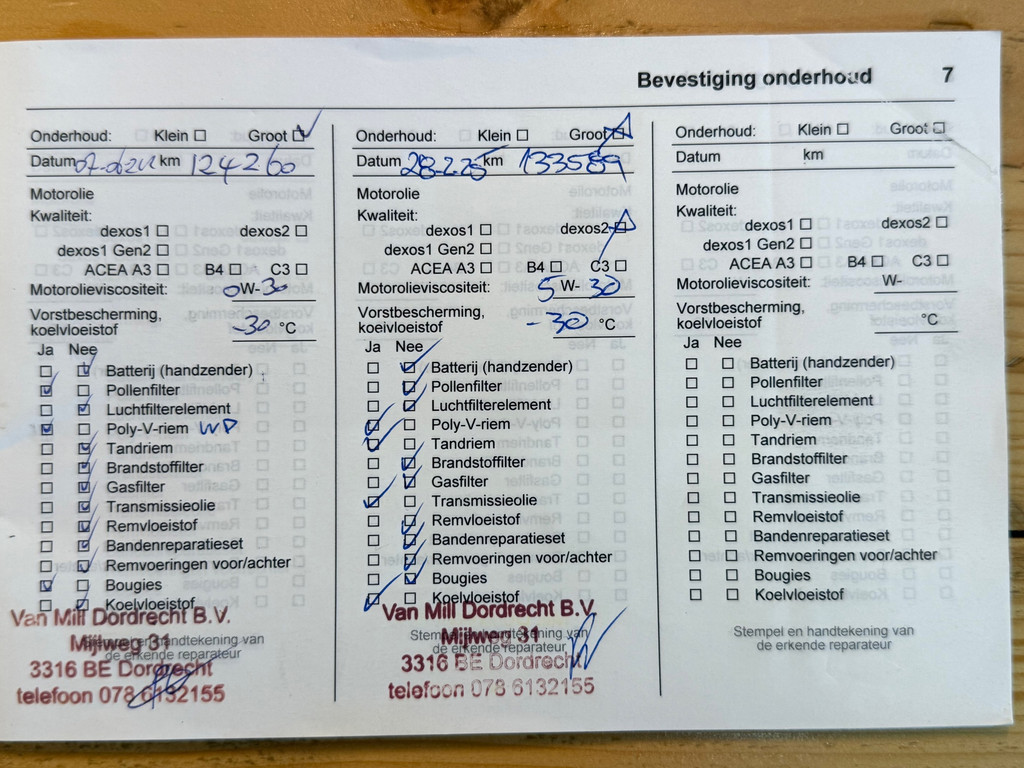 Bevestiging onderhoud 7
Onderhoud: Klein Groot
Datum km 124260
Motorolie
Kwaliteit:
dexos1 dexos2
dexos1 Gen2
ACEA A3 B4 C3
Motorolieviscositeit: 0W-30
Vorstbescherming,
koelvloeistof -30 °C
Ja Nee
Batterij (handzender)
Pollenfilter
Luchtfilterelement
Poly-V-riem WP
Tandriem
Brandstoffilter
Gasfilter
Transmissieolie
Remvloeistof
Bandenreparatieset
Remvoeringen voor/achter
Bougies
Koelvloeistof
Van Mill Dordrecht B.V.
Mijlweg 31
Stempel en handtekening van
de erkende reparateur
3316 BE Dordrecht
telefoon 078 6132155
Onderhoud: Klein Groot
Datum 28-2-25 km 133589
Motorolie
Kwaliteit:
dexos1 dexos2
dexos1 Gen2
ACEA A3 B4 C3
Motorolieviscositeit: 5W-30
Vorstbescherming,
koelvloeistof -30 °C
Ja Nee
Batterij (handzender)
Pollenfilter
Luchtfilterelement
Poly-V-riem
Tandriem
Brandstoffilter
Gasfilter
Transmissieolie
Remvloeistof
Bandenreparatieset
Remvoeringen voor/achter
Bougies
Koelvloeistof
Van Mill Dordrecht B.V.
Mijlweg 31
Stempel en handtekening van
de erkende reparateur
3316 BE Dordrecht
telefoon 078 6132155
Onderhoud: Klein Groot
Datum km
Motorolie
Kwaliteit:
dexos1 dexos2
dexos1 Gen2
ACEA A3 B4 C3
Motorolieviscositeit: W-
Vorstbescherming,
koelvloeistof °C
Ja Nee
Batterij (handzender)
Pollenfilter
Luchtfilterelement
Poly-V-riem
Tandriem
Brandstoffilter
Gasfilter
Transmissieolie
Remvloeistof
Bandenreparatieset
Remvoeringen voor/achter
Bougies
Koelvloeistof
Stempel en handtekening van
de erkende reparateur